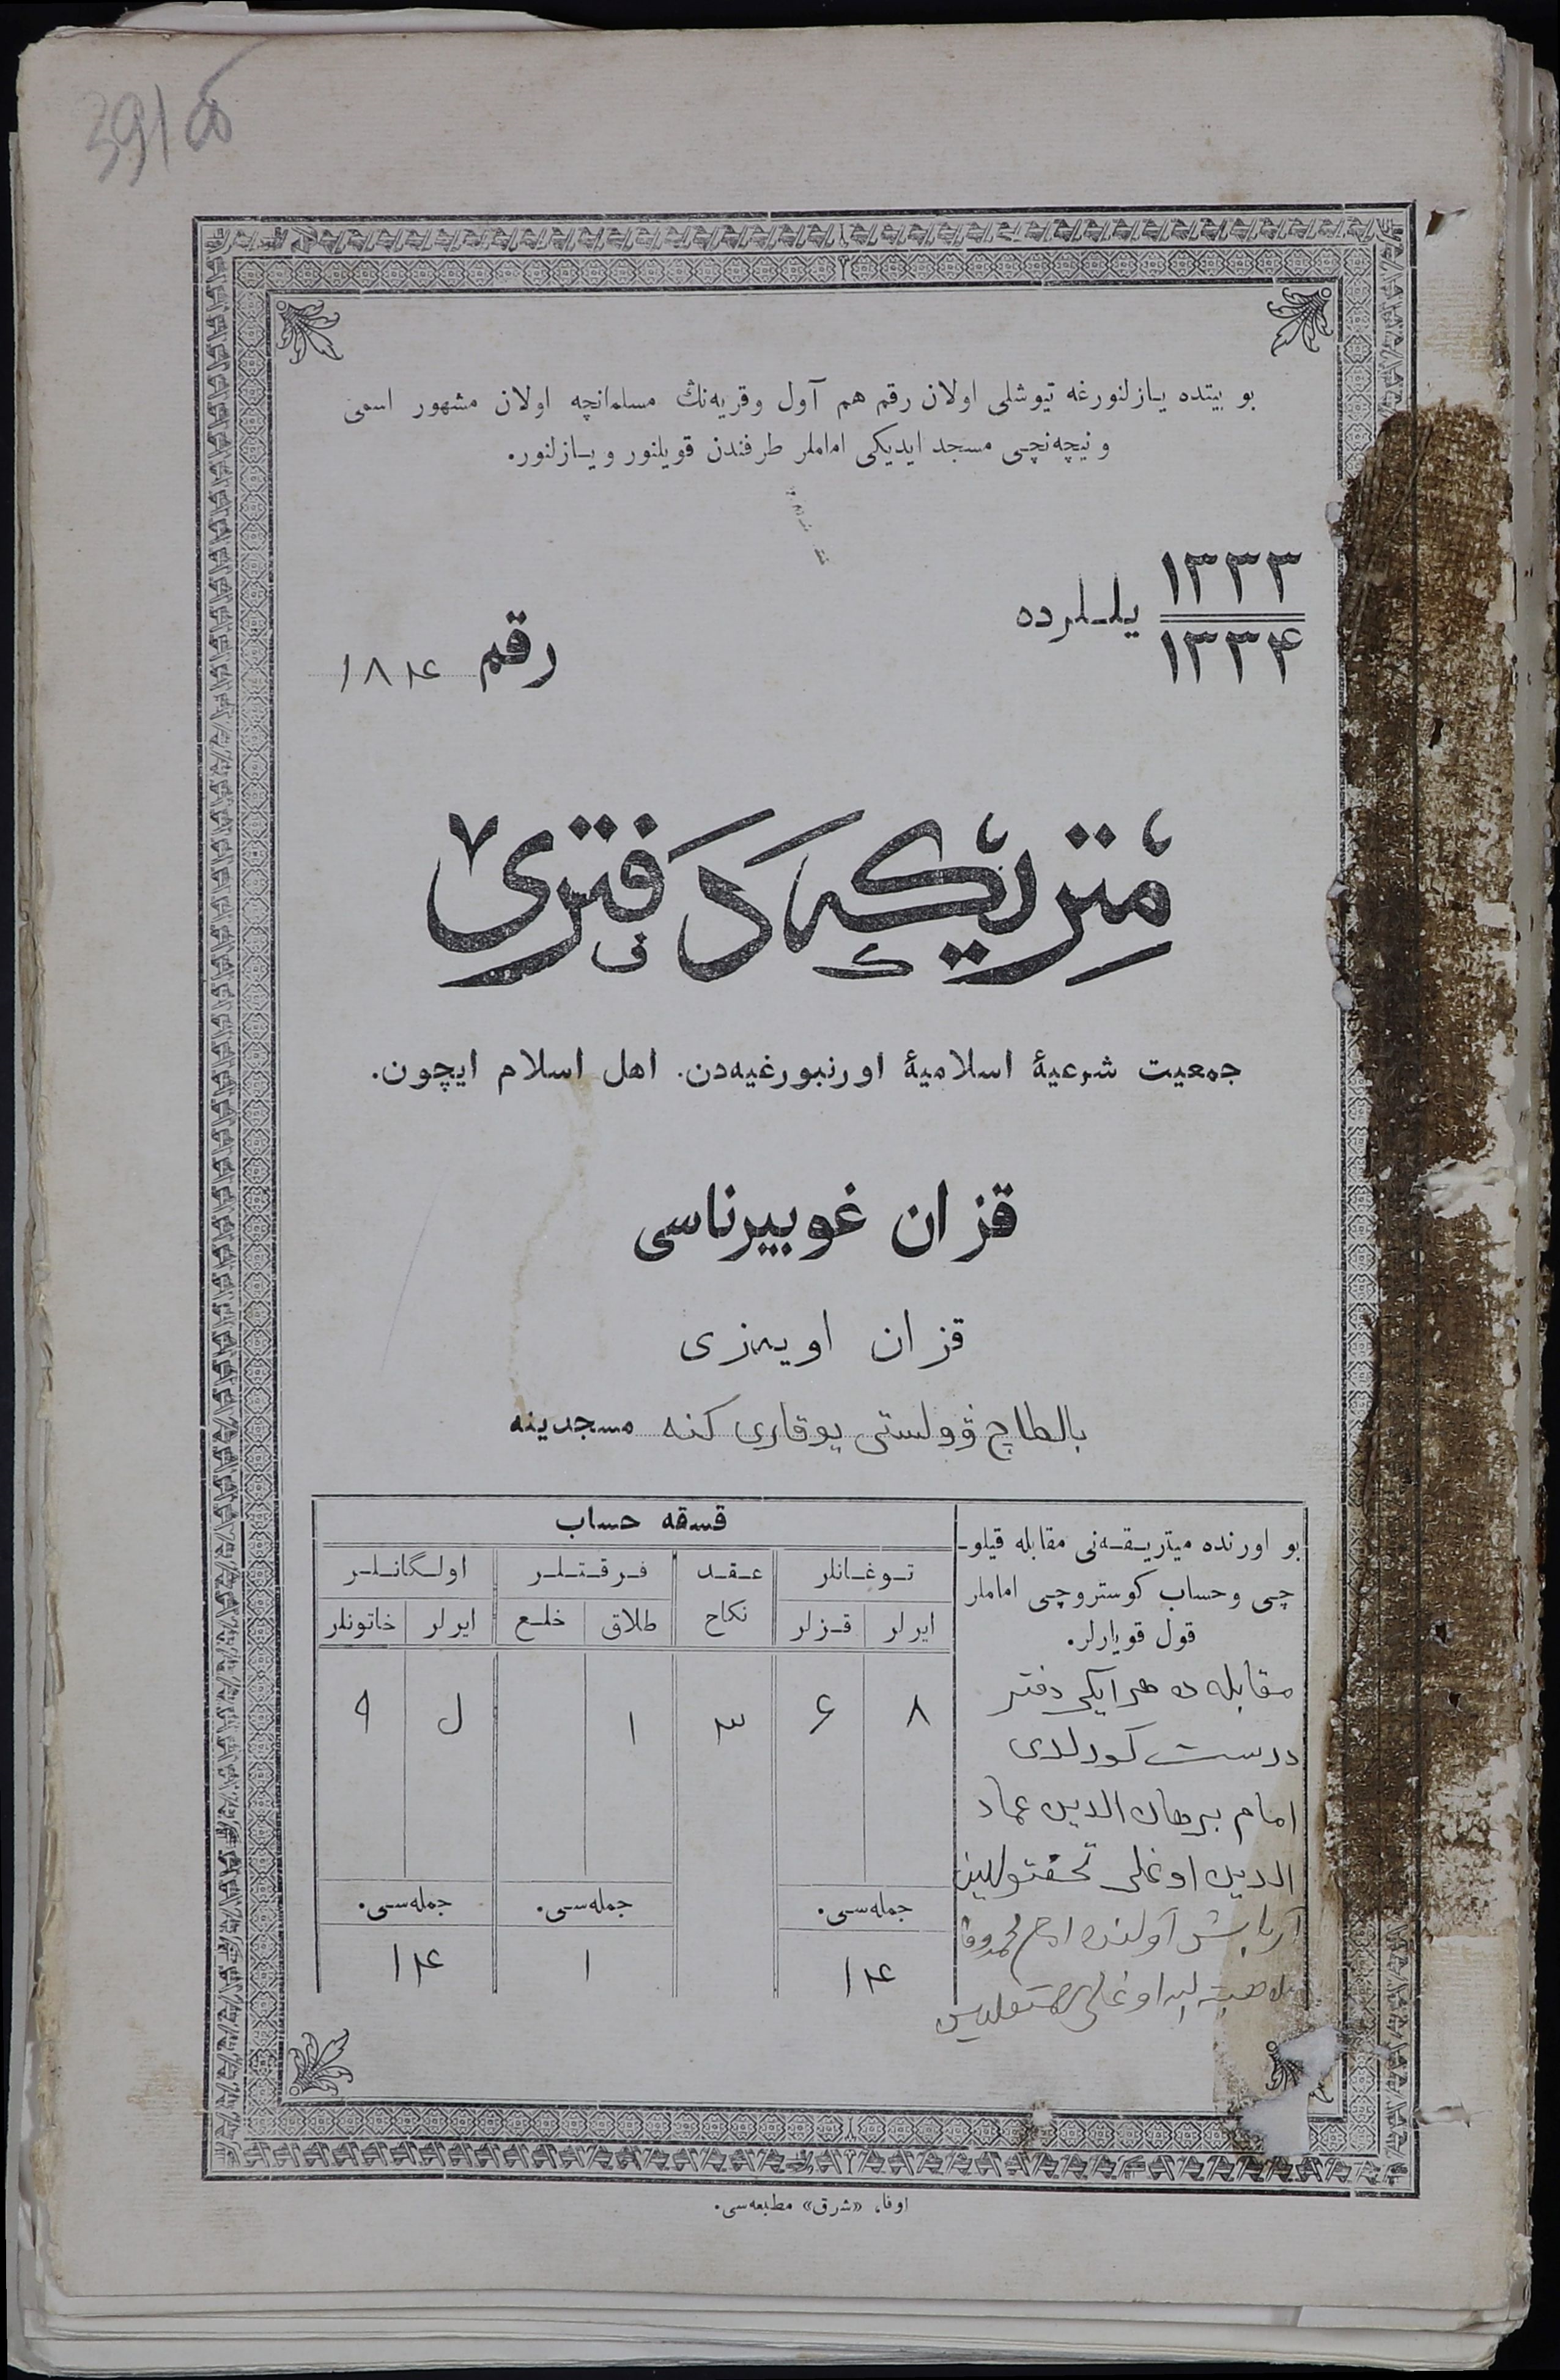 391 об
بو بیتده یازلنورغه تیوشلی اولان رقم هم آول وقریه‌نڭ مسلمانچه اولان مشهور اسمی
ونیچه‌نچی مسجد ایدیکی اماملر طرفندن قویلنور ویازلنور.
۱۳۳۳
۱۳۳۴
یللرده
رقم ۱۸۴
متریكه دفتری
جمعیت شرعیهٔ اسلامیهٔ اورنبورغیه‌دن. اهل اسلام ایچون.
قزان غوبیرناسی
قزان اویه‌زی
بالطاچ ڤولستی یوقاری کنه مسجدینه
بو اورنده میتریقه‌نی مقابله قیلو-
چی وحساب کوستروچی اماملر
قول قویارلر.
مقابله ده هر ایکی دفتر
درست کورلدی
امام برهان الدین عماد
الدین اوغلی
آولنده
اوغلی
قسقه حساب
توغانلر
عقد
نکاح
فرقتلر
اولگانلر
ایرلر
قزلر
طلاق
خلع
ایرلر
خاتونلر
۸
۶
۳
۱
۹
جمله‌سی.
جمله‌سی.
جمله‌سی.
۱۴
۱
۱۴
اوفا، «شرق» مطبعه‌سی.